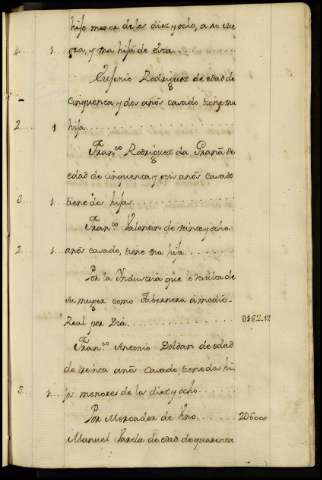 hijo menor de los diez y ocho, a su sue
4. 1. gra, y una hija de esta
Eusenio Rodriguez de edad de
cinquenta y dos años casado tiene una
2. 1 hija
Fran.co Rodriguez da Graña de
edad de cinquenta y seis años casado
3. 1. tiene dos hijas
Fran.co Valencia de veinte y ocho
2. 1. años casado, tiene una hija
Por la Industria que le resulta de
su muger como Tabernera a medio
Real por Dia 0182.17
Fran.co Antonio Doldan de edad
de treinta años casado tiene dos hi
3. 1. jos menores de los diez y ocho
Por Mercader de Vino 206000
Manuel Varela de edad de quarenta